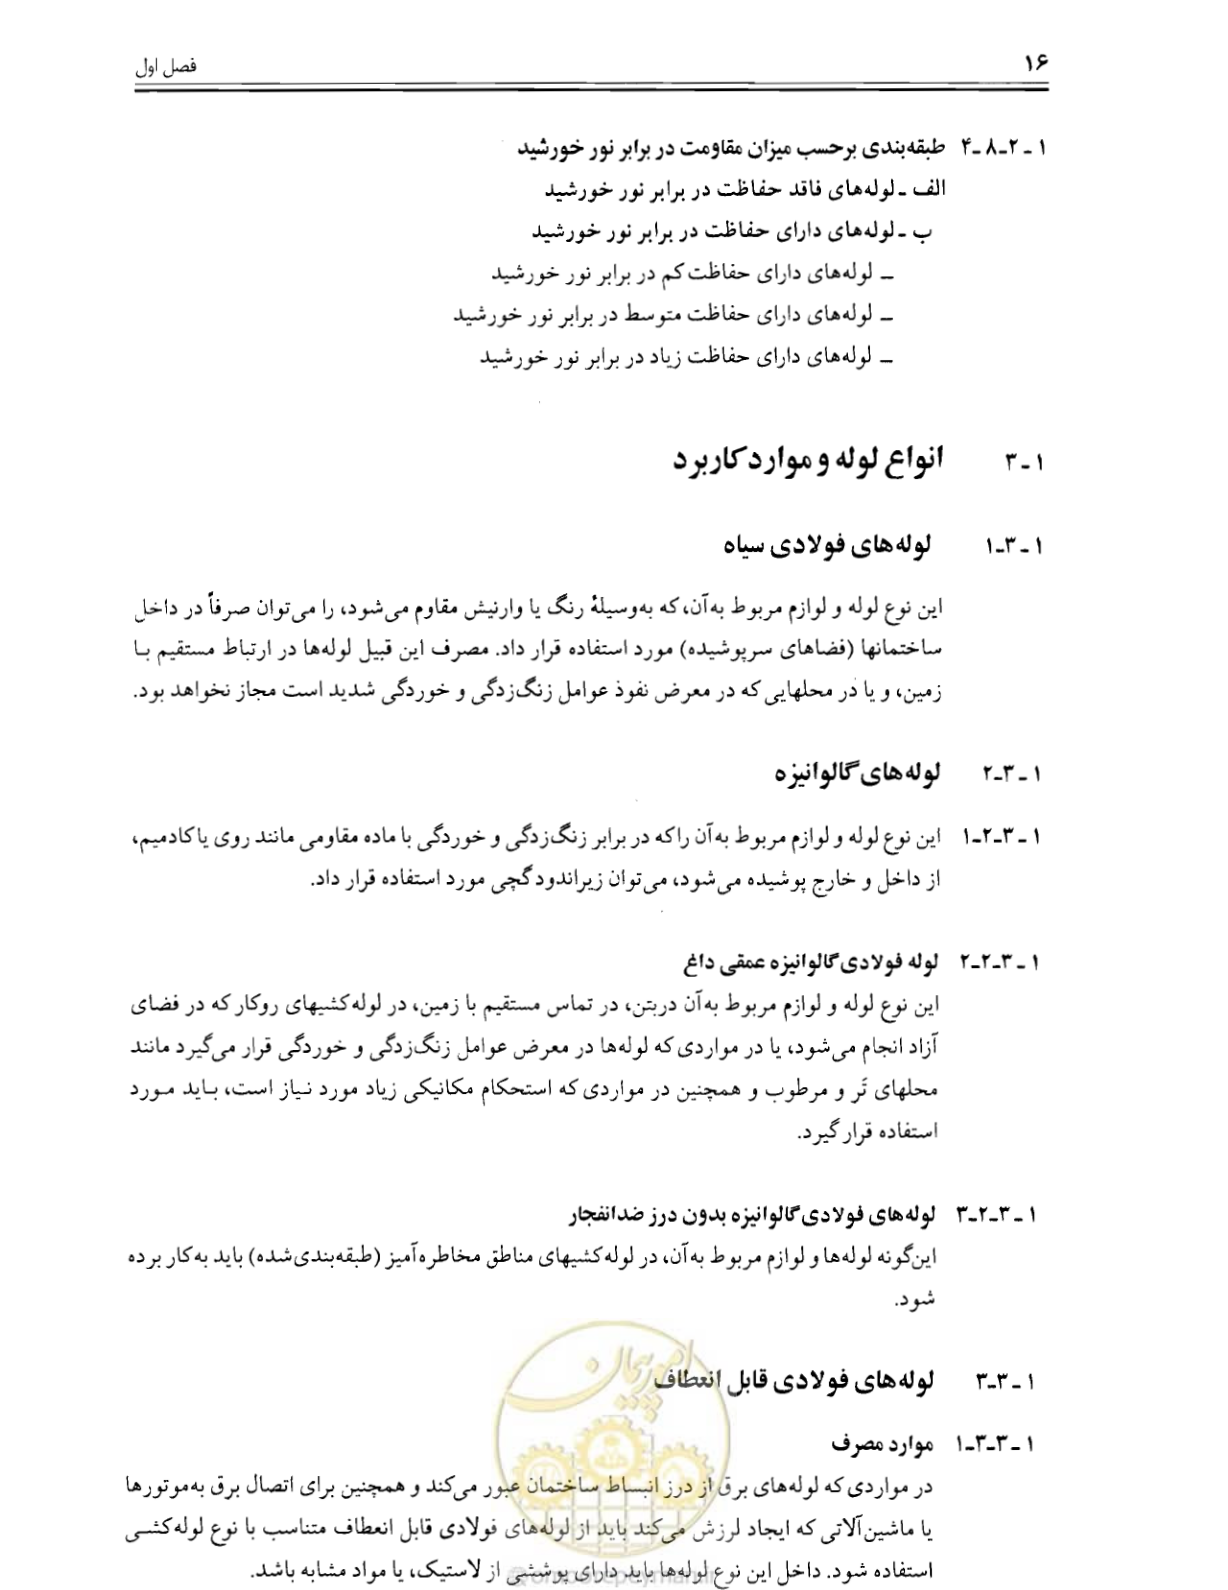 ۱۶
فصل اول
۱ـ۲ـ۸ـ۴ طبقه‌بندی برحسب میزان مقاومت در برابر نور خورشید
الف ـ لوله‌های فاقد حفاظت در برابر نور خورشید
ب ـ لوله‌های دارای حفاظت در برابر نور خورشید
ـ لوله‌های دارای حفاظت کم در برابر نور خورشید
ـ لوله‌های دارای حفاظت متوسط در برابر نور خورشید
ـ لوله‌های دارای حفاظت زیاد در برابر نور خورشید
۱ـ۳ انواع لوله و موارد کاربرد
۱ـ۳ـ۱ لوله‌های فولادی سیاه
این نوع لوله و لوازم مربوط به‌آن، که به‌وسیلهٔ رنگ یا وارنیش مقاوم می‌شود، را می‌توان صرفاً در داخل
ساختمانها (فضاهای سرپوشیده) مورد استفاده قرار داد. مصرف این قبیل لوله‌ها در ارتباط مستقیم با
زمین، و یا در محلهایی که در معرض نفوذ عوامل زنگ‌زدگی و خوردگی شدید است مجاز نخواهد بود.
۱ـ۳ـ۲ لوله‌های گالوانیزه
۱ـ۳ـ۲ـ۱ این نوع لوله و لوازم مربوط به‌آن را که در برابر زنگ‌زدگی و خوردگی با ماده مقاومی مانند روی یا کادمیم،
از داخل و خارج پوشیده می‌شود، می‌توان زیراندود گچی مورد استفاده قرار داد.
۱ـ۳ـ۲ـ۲ لوله فولادی گالوانیزه عمقی داغ
این نوع لوله و لوازم مربوط به‌آن دربتن، در تماس مستقیم با زمین، در لوله‌کشیهای روکار که در فضای
آزاد انجام می‌شود، یا در مواردی که لوله‌ها در معرض عوامل زنگ‌زدگی و خوردگی قرار می‌گیرد مانند
محلهای تَر و مرطوب و همچنین در مواردی که استحکام مکانیکی زیاد مورد نیاز است، باید مورد
استفاده قرار گیرد.
۱ـ۳ـ۲ـ۳ لوله‌های فولادی گالوانیزه بدون درز ضدانفجار
این‌گونه لوله‌ها و لوازم مربوط به‌آن، در لوله‌کشیهای مناطق مخاطره‌آمیز (طبقه‌بندی‌شده) باید به‌کار برده
شود.
امور پیمان
۱ـ۳ـ۳ لوله‌های فولادی قابل انعطاف
۱ـ۳ـ۳ـ۱ موارد مصرف
در مواردی که لوله‌های برق از درز انبساط ساختمان عبور می‌کند و همچنین برای اتصال برق به‌موتورها
یا ماشین‌آلاتی که ایجاد لرزش می‌کند باید از لوله‌های فولادی قابل انعطاف متناسب با نوع لوله‌کشی
استفاده شود. داخل این نوع لوله‌ها باید دارای پوششی از لاستیک، یا مواد مشابه باشد.